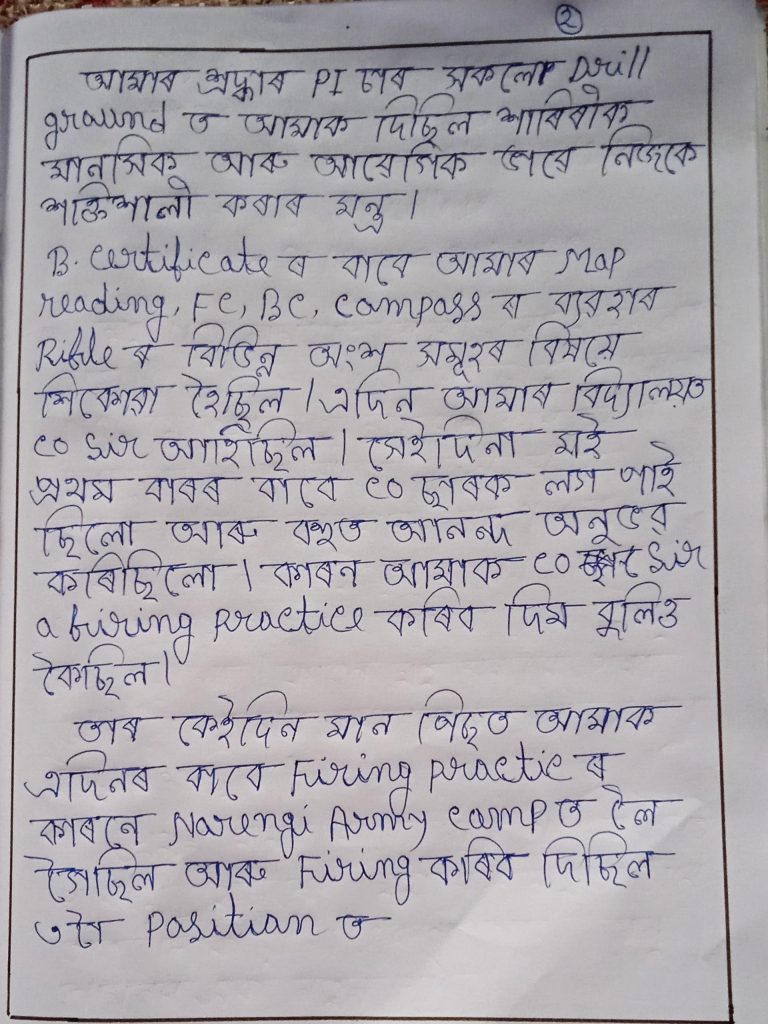 ২
আমাৰ শ্ৰদ্ধাৰ PI চাৰ সকলে Drill
ground ত আমাক দিছিল শাৰিৰীক
মানসিক আৰু আৱেগিক ভাৱে নিজকে
শক্তিশালী কৰাৰ মন্ত্ৰ।
B. Certificate ৰ বাবে আমাৰ Map
reading, FC, BC, Compass ৰ ব্যৱহাৰ
Rifle ৰ বিভিন্ন অংশ সমূহৰ বিষয়ে
শিকোৱা হৈছিল। এদিন আমাৰ বিদ্যালয়ত
CO Sir আহিছিল। সেইদিনা মই
প্ৰথম বাৰৰ বাবে CO ছাৰক লগ পাই
ছিলো আৰু বহুত আনন্দ অনুভৱ
কৰিছিলো। কাৰন আমাক CO Sir
a firing practice কৰিব দিম বুলিও
কৈছিল।
তাৰ কেইদিন মান পিছত আমাক
এদিনৰ বাবে Firing practic ৰ
কাৰনে Narengi Army camp ত লৈ
গৈছিল আৰু Firing কৰিব দিছিল
তৈ Pasitian ত